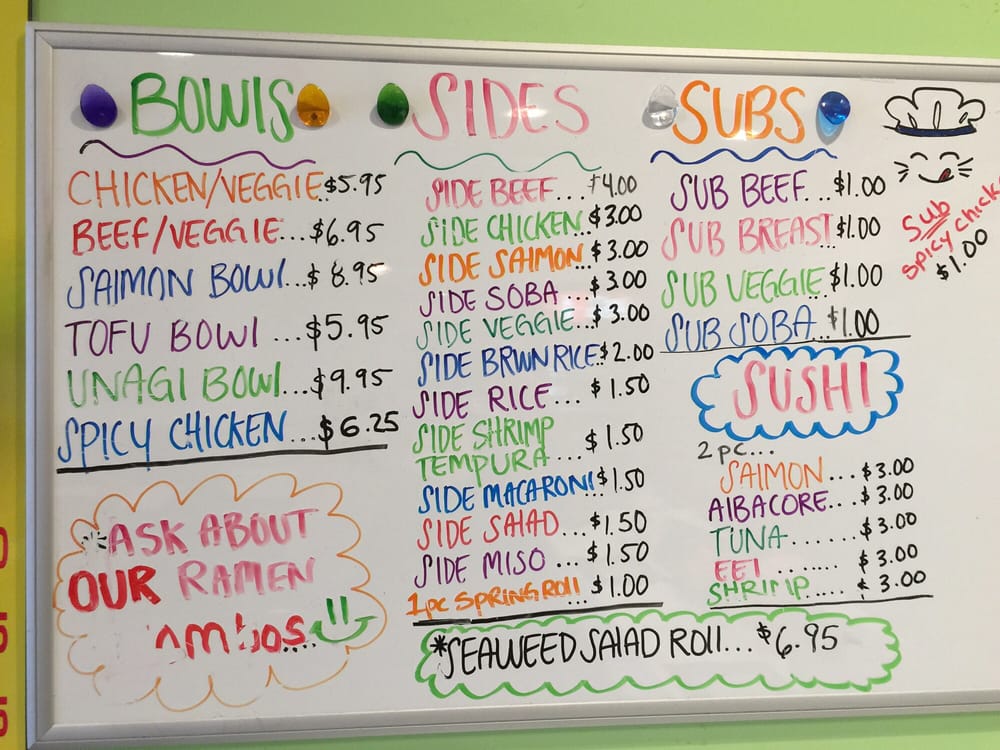 BOWlS
CHICKEN/VEGGIE $5.95
BEEF/VEGGIE...$6.95
SAlMON BOWl...$8.95
TOFU BOWl ...$5.95
UNAGI BOWl...$9.95
SPICY CHICKEN...$6.25
*ASK ABOUT
OUR RAMEN
SIDES
SIDE BEEF...$4.00
SIDE CHICKEN $3.00
SIDE SAlMON $3.00
SIDE SOBA...$3.00
SIDE VEGGIE...$3.00
SIDE BRWN RICE $2.00
SIDE RICE...$1.50
SIDE SHRIMP
TEMPURA...$1.50
SIDE MACARONI $1.50
SIDE SAlAD...$1.50
SIDE MISO ...$1.50
1pc SPRING ROll ...$1.00
SUBS
SUB BEEF...$1.00
SUB BREAST $1.00
SUB VEGGIE $1.00
SUB SOBA...$1.00
SUB
SPICY CHICK
$1.00
SUSHI
2 pc...
SAlMON...$3.00
AlBACORE...$3.00
TUNA.......$3.00
EEl .......$3.00
SHRIMP.....$3.00
*SEAWEED SAlAD ROll...$6.95